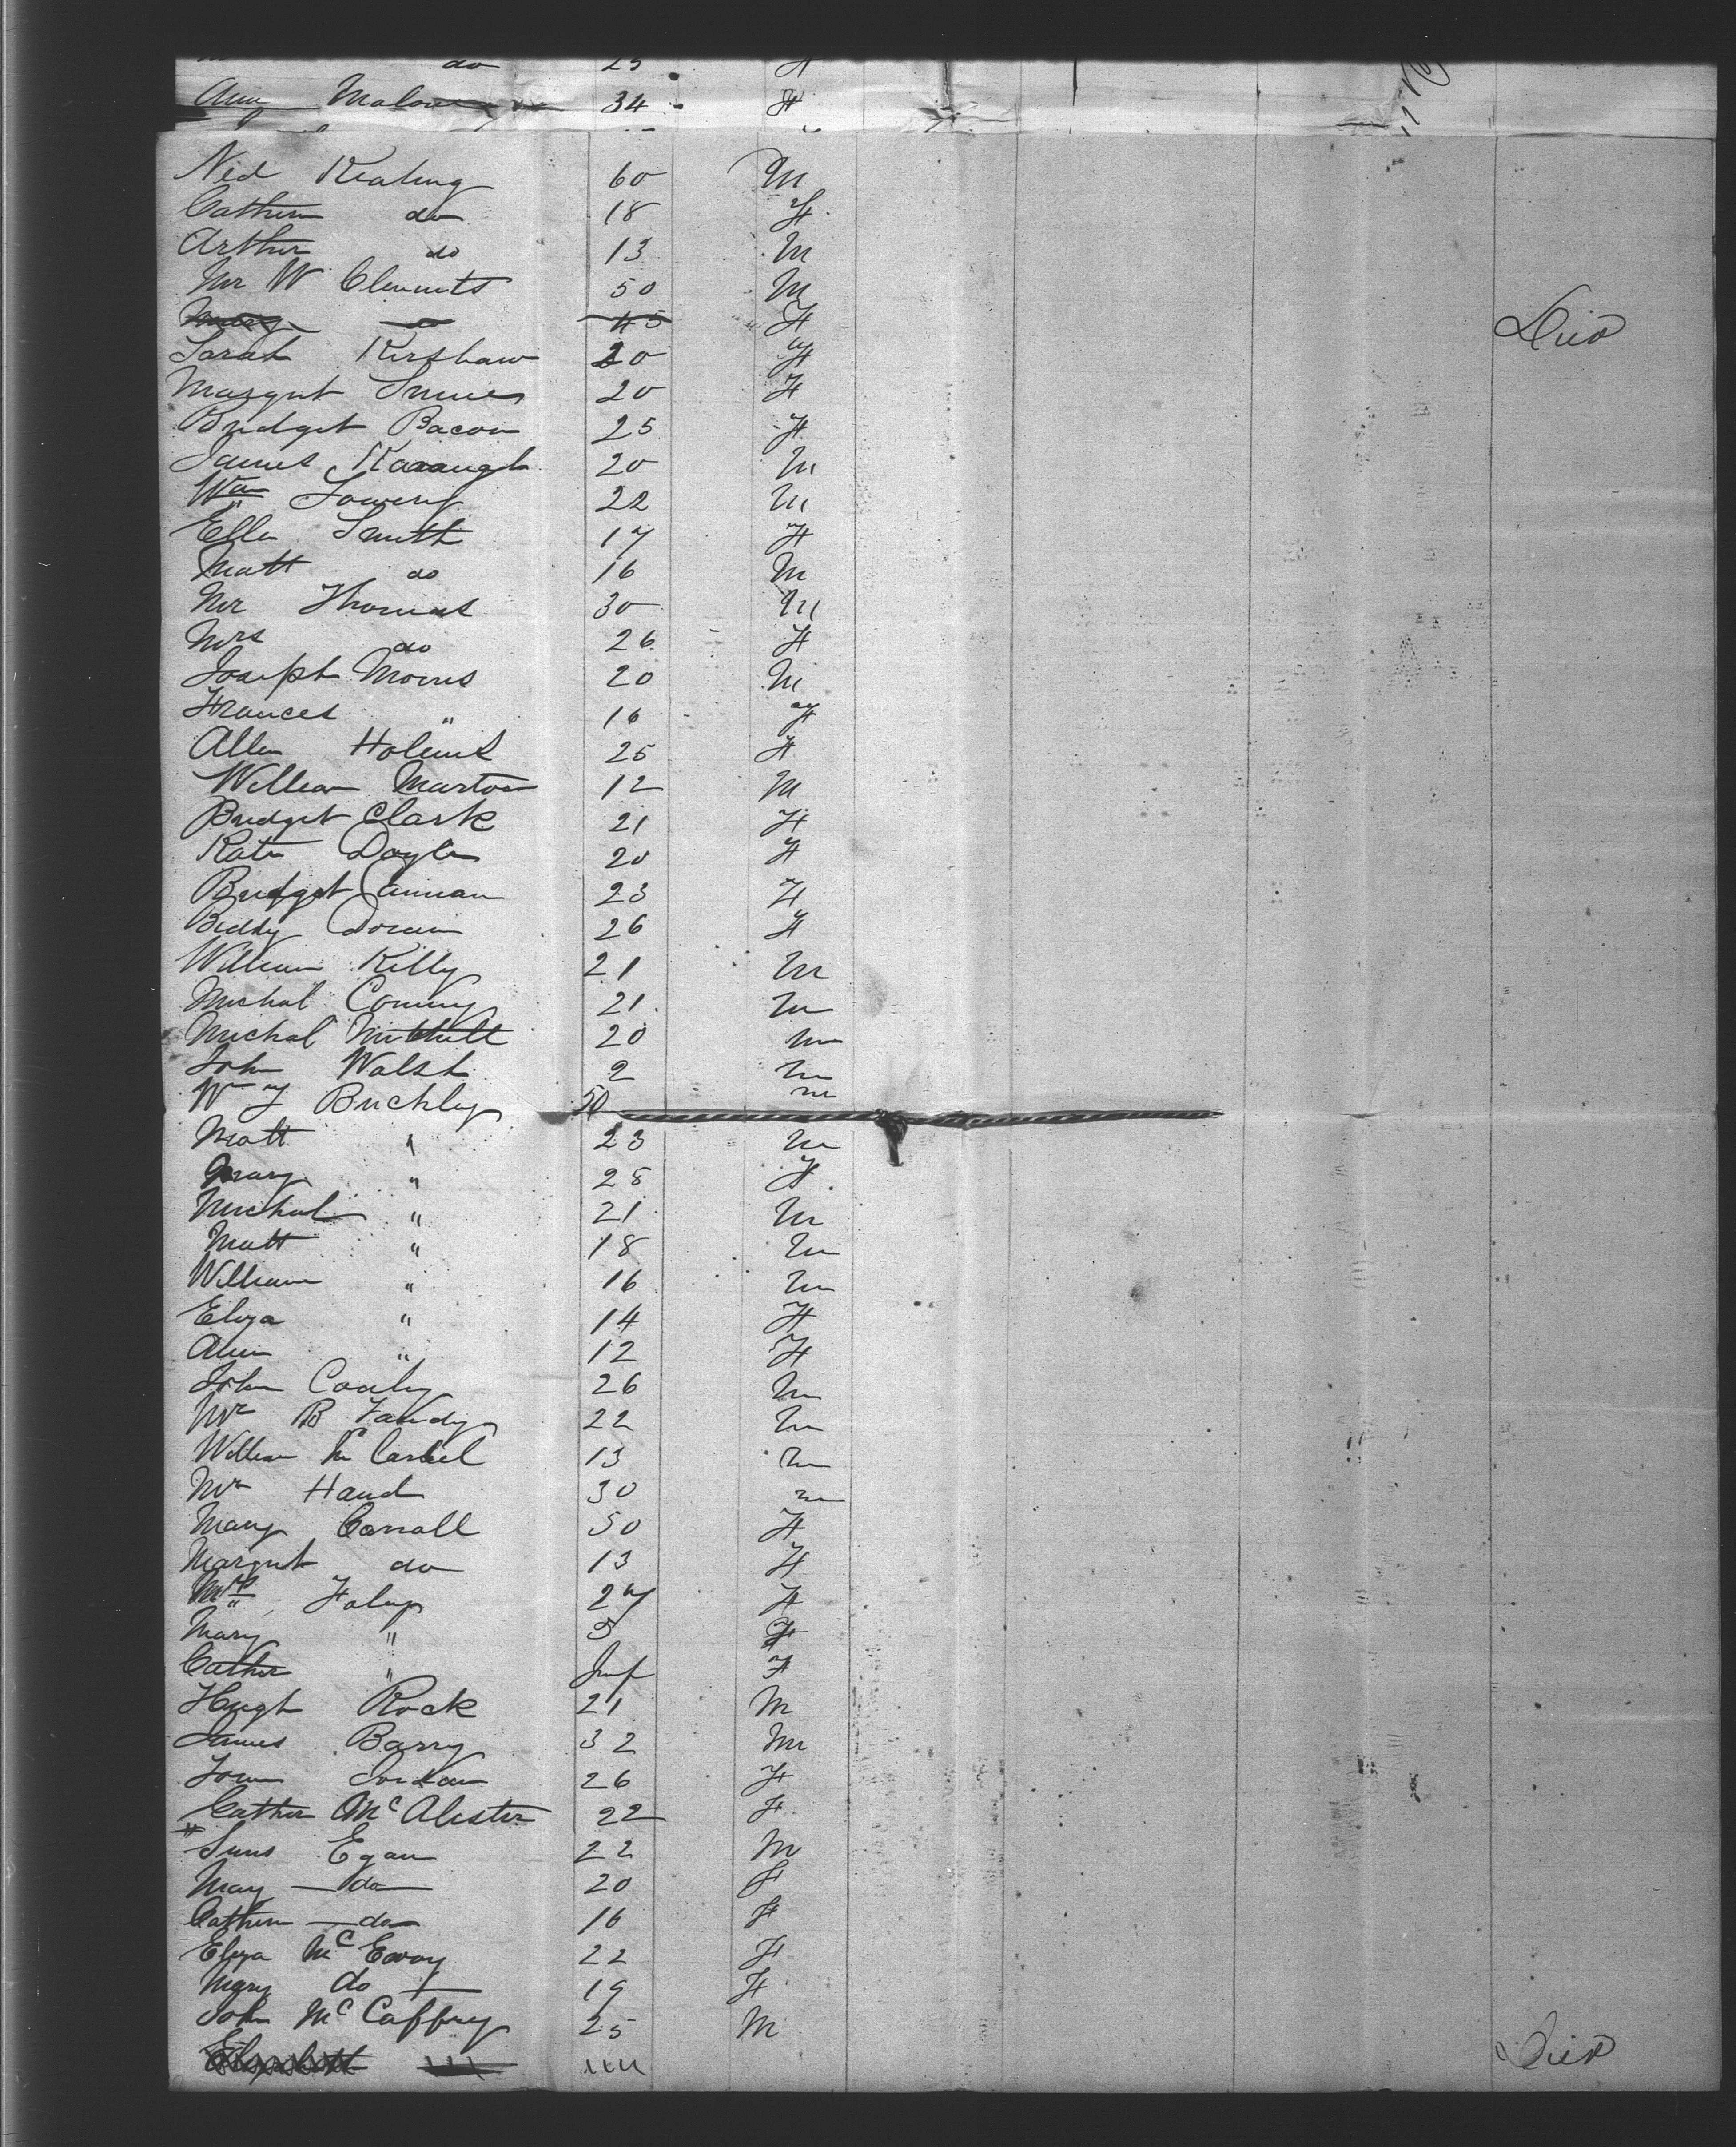 do 25 F
Ann Malone 34 F
Ned Keating 60 M
Cathern do 18 F
Arthur do 13 M
Mr W Clements 50 M
Mary do 45 F Died
Sarah Kershaw 20 F
Margret 20 F
Bridget Bacon 25 F
James Kavangh 20 M
Wm Lowery 22 M
Ellen Smith 17 F
Matt do 16 M
Mr Thomas 30 M
Mrs do 26 F
Joseph Morris 20 M
Frances " 16 F
Allen Holems 25 F
William Marton 12 M
Bridget Clark 21 F
Kate Doyle 20 F
Bridget 23 F
Biddy Doran 26 F
William Killy 21 M
Michal 21 M
Michal Mitchell 20 M
John Walsh 2 M
Buckley 50 M
Matt " 23 M
Mary " 28 F
Michal " 21 M
Matt " 18 M
William " 16 M
Eliza " 14 F
Ann " 12 F
John 26 M
Mr B 22 M
William Mc 13 M
Mr Hand 30 M
Mary Carroll 50 F
Margret do 13 F
Mrs Foley 27 F
Mary " 5 F
Cather " Inf F
Hugh Rock 21 M
James Barry 32 M
Jordan 26 F
Cather McAlister 22 F
Egan 22 M
May do 20 F
Cathern do 16 F
Eliza McEvoy 22 F
Mary do 19 F
John McCaffrey 25 M
Elizabeth Died